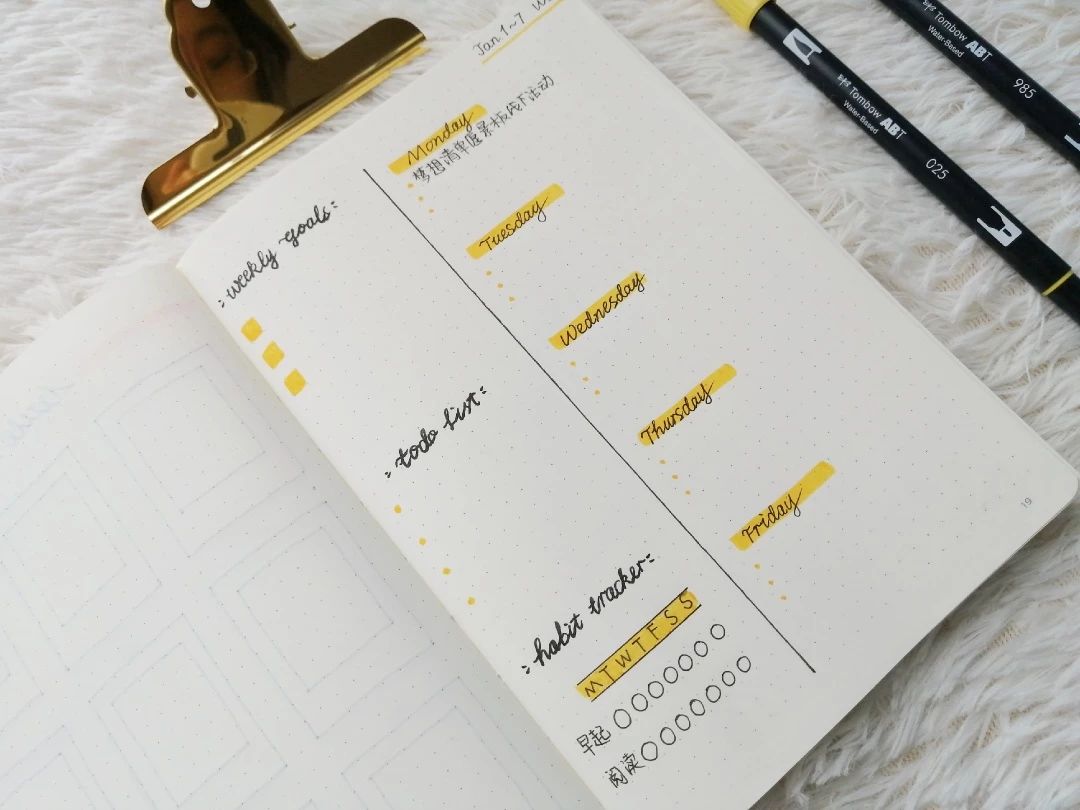 Jan 1~7
Monday
梦想清单愿景板线下活动
Tuesday
Wednesday
Thursday
Friday
: weekly goals:
: todo list:
: habit tracker:
M T W T F S S
早起
阅读
19
Tombow ABT
Water-Based
025
Tombow ABT
Water-Based
985